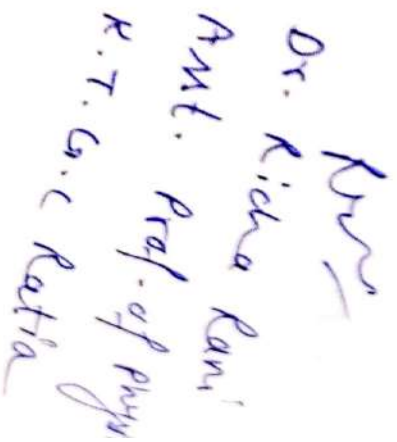 Dr. Richa Rani
Asst. Prof. of
K.T.G.C Ratia